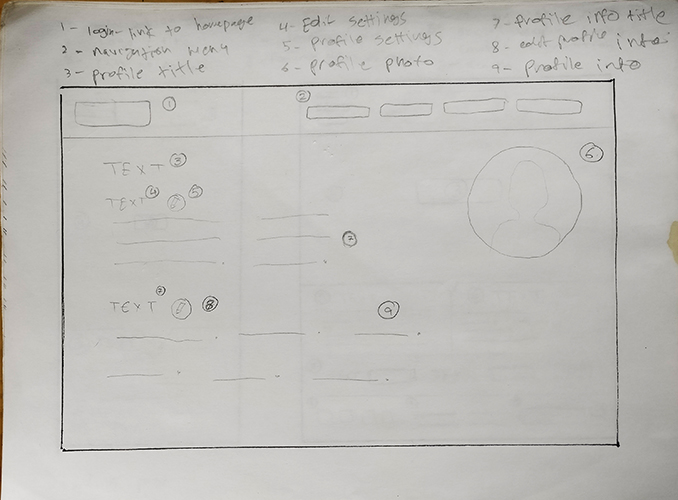 1- login- link to homepage
2- navigation menu
3- profile title
4- Edit settings
5- profile settings
6- profile photo
7- profile info title
8- edit profile info
9- profile info
1
2
TEXT 3
6
TEXT 4 5
TEXT 8
9